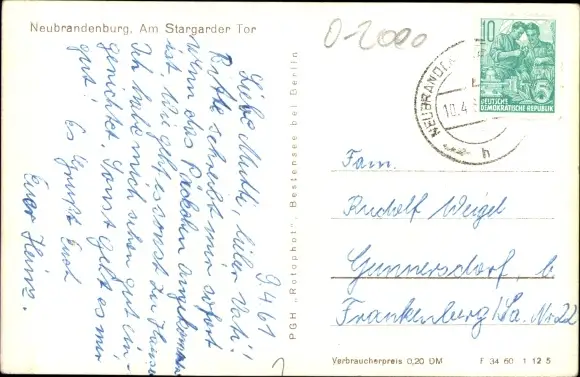 Neubrandenburg, Am Stargarder Tor
9.4.61
Liebe Mutti, lieber Vati!
Bitte schreibt mir sofort
wenn das Päckchen angekommen
ist. Wie geht es sonst zu Hause
Ich habe mich schon gut ein-
gerichtet. Sonst geht es mir
gut!
Es grüßt Euch
Euer Heinz.
PGH „Rotophot", Bestensee bei Berlin
0-2000
10
DEUTSCHE
DEMOKRATISCHE REPUBLIK
NEUBRANDEN
10.4.
h
Fam.
Rudolf Weigel
Gunnersdorf, b.
Frankenberg/Sa. Nr. 22
Verbraucherpreis 0,20 DM F 34 60 1 12 5